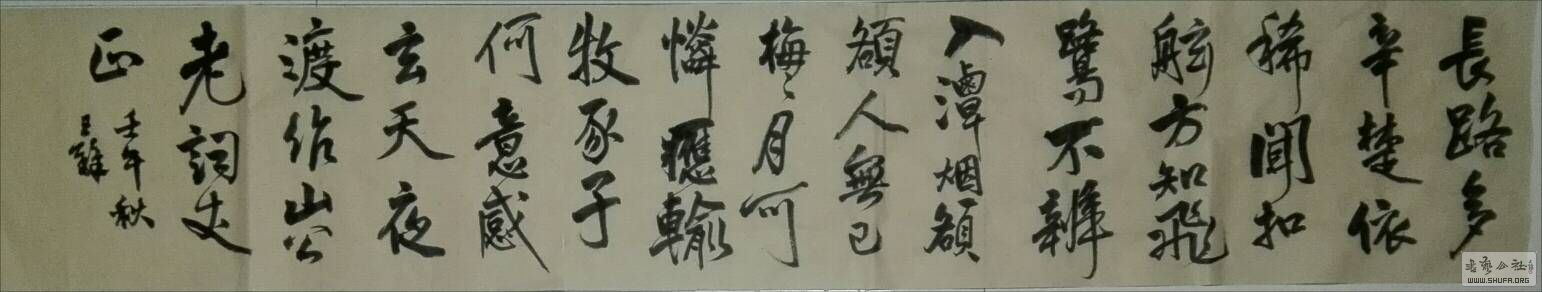 長路多
辛楚依
稀聞扣
舷方知飛
鷺不辨
入潭烟額
額人無已
梅〻月可
憐應輸
牧豕子
何意感
玄天夜
渡作山公
老詞丈
正
壬午秋
王
书艺公社
WWW.SHUFA.ORG